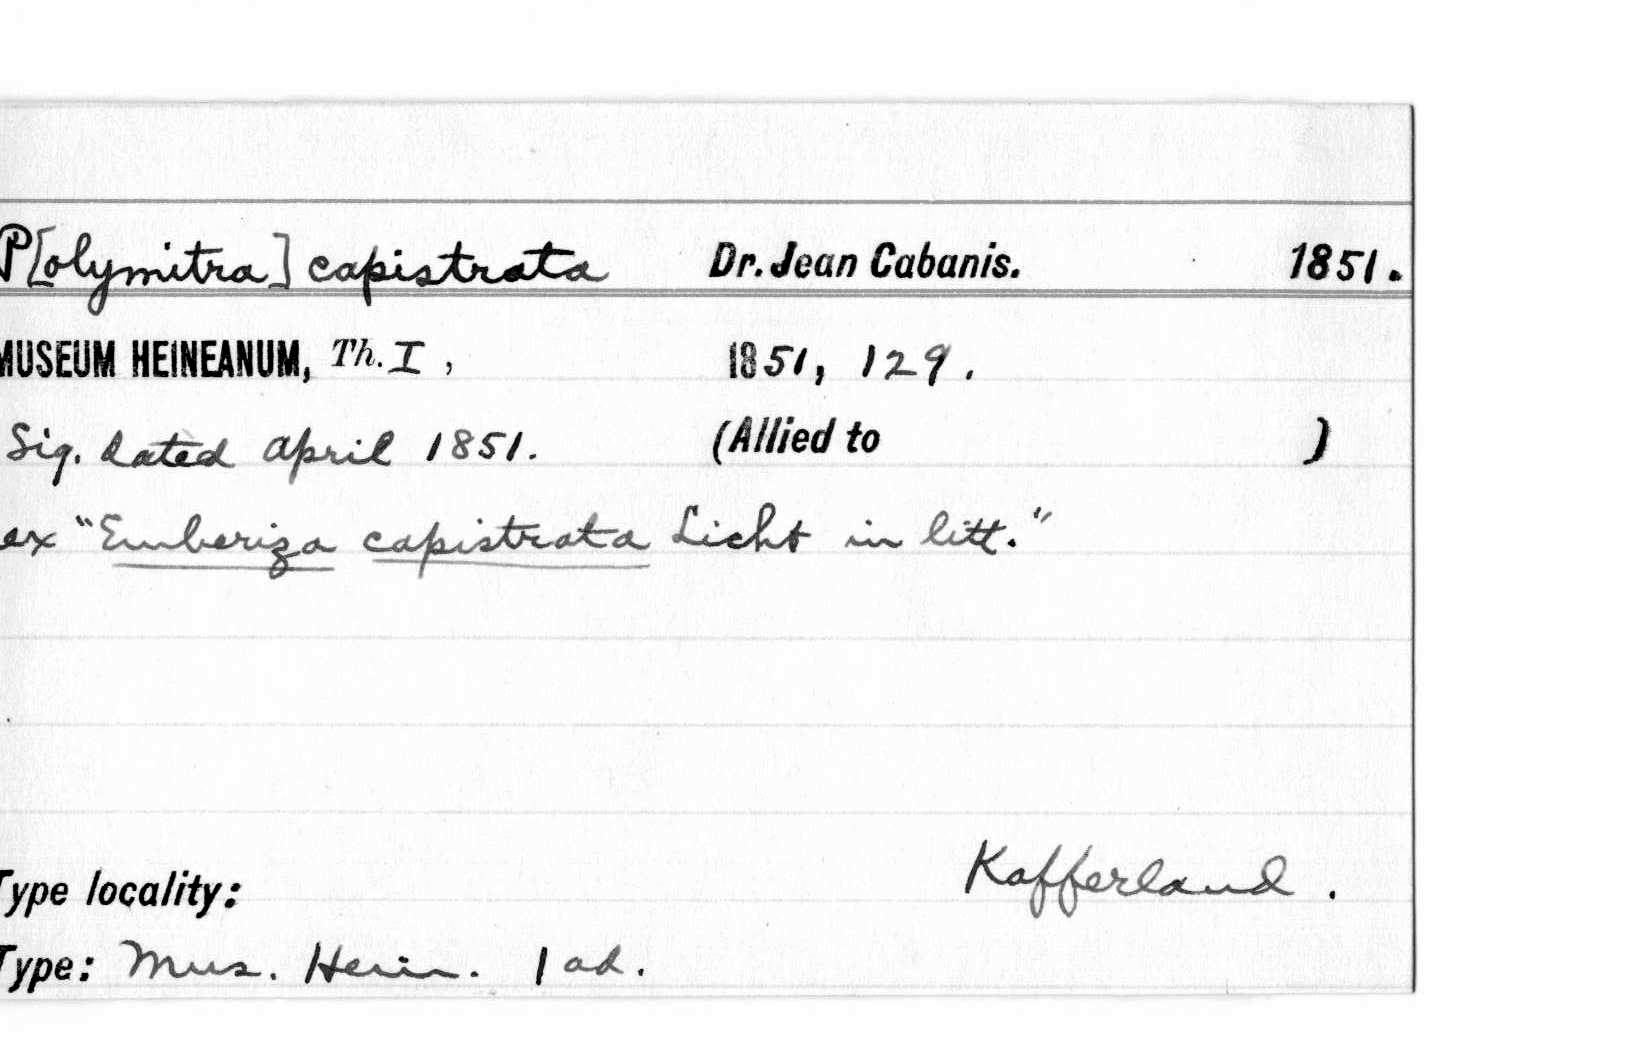 P[olymitra] capistrata Dr. Jean Cabanis. 1851.
MUSEUM HEINEANUM, Th. I, 1851, 129.
Sig. dated April 1851. (Allied to )
ex "Emberiza capistrata Licht in litt."
Kafferland.
Type locality:
Type: Mus. Hein. 1 ad.